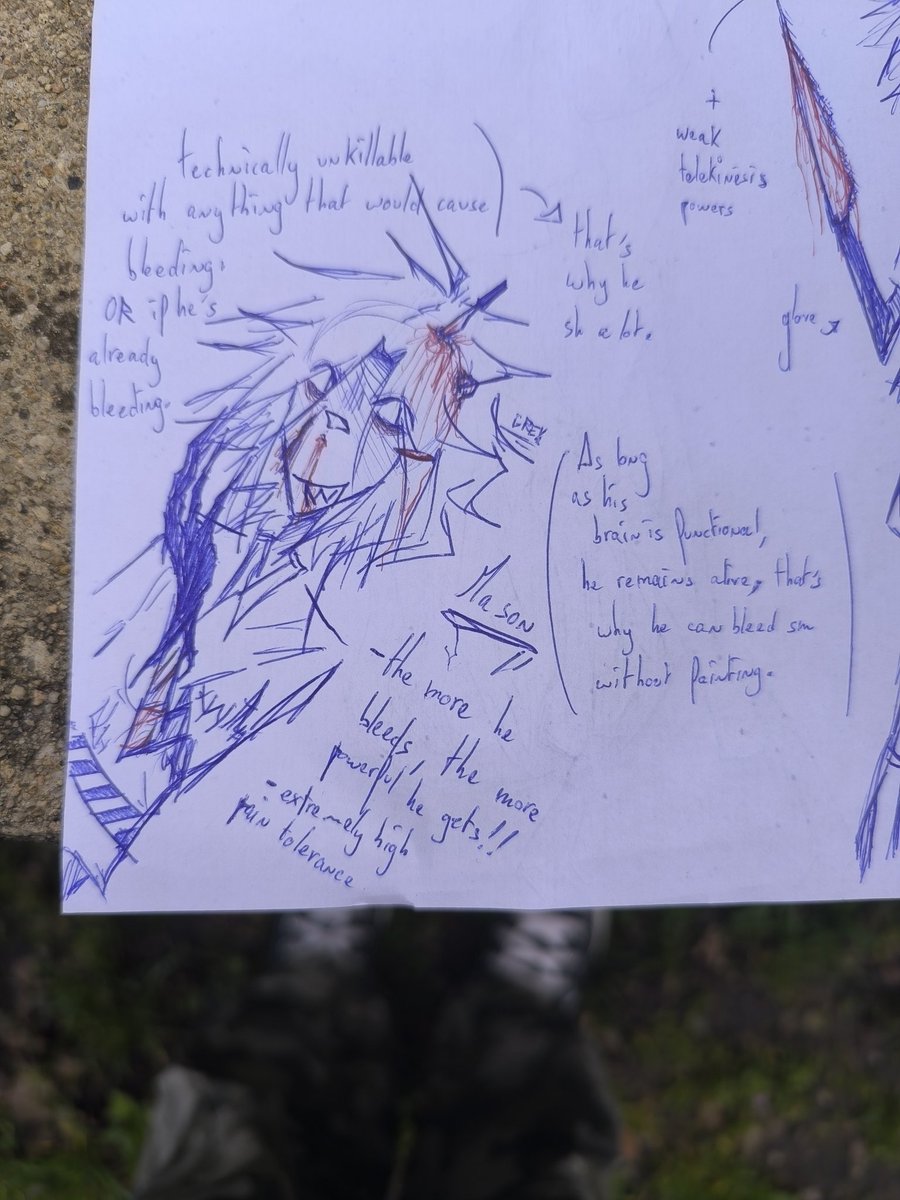 technically unkillable
with anything that would cause
bleeding.
OR if he's
already
bleeding.
that's
why he
sh a lot.
+
weak
telekinesis
powers
glove
As long
as his
brain is functional,
he remains alive, that's
why he can bleed sm
without fainting.
Mason
- the more he
bleeds, the more
powerful he gets!!
- extremely high
pain tolerance